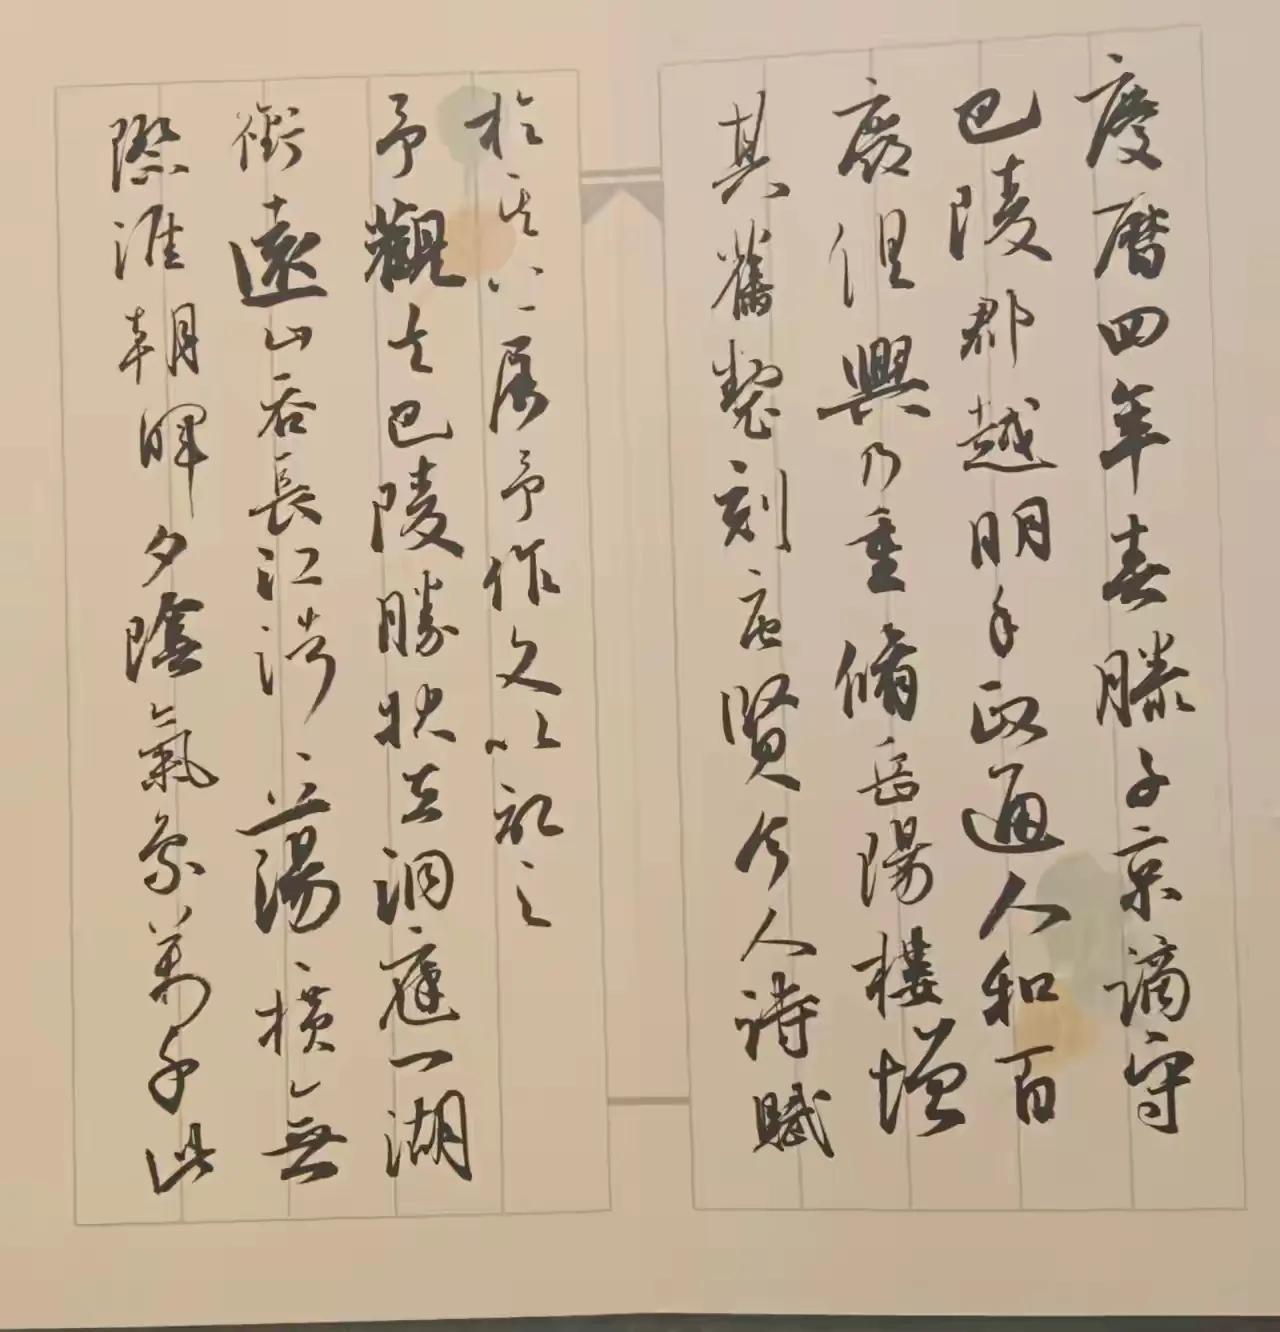 慶曆四年春滕子京謫守
巴陵郡越明年政通人和百
廢俱興乃重脩岳陽樓增
其舊製刻唐賢今人詩賦
於其上屬予作文以記之
予觀夫巴陵勝狀在洞庭一湖
銜遠山吞長江浩〻蕩〻橫無
際涯朝暉夕陰氣象萬千此